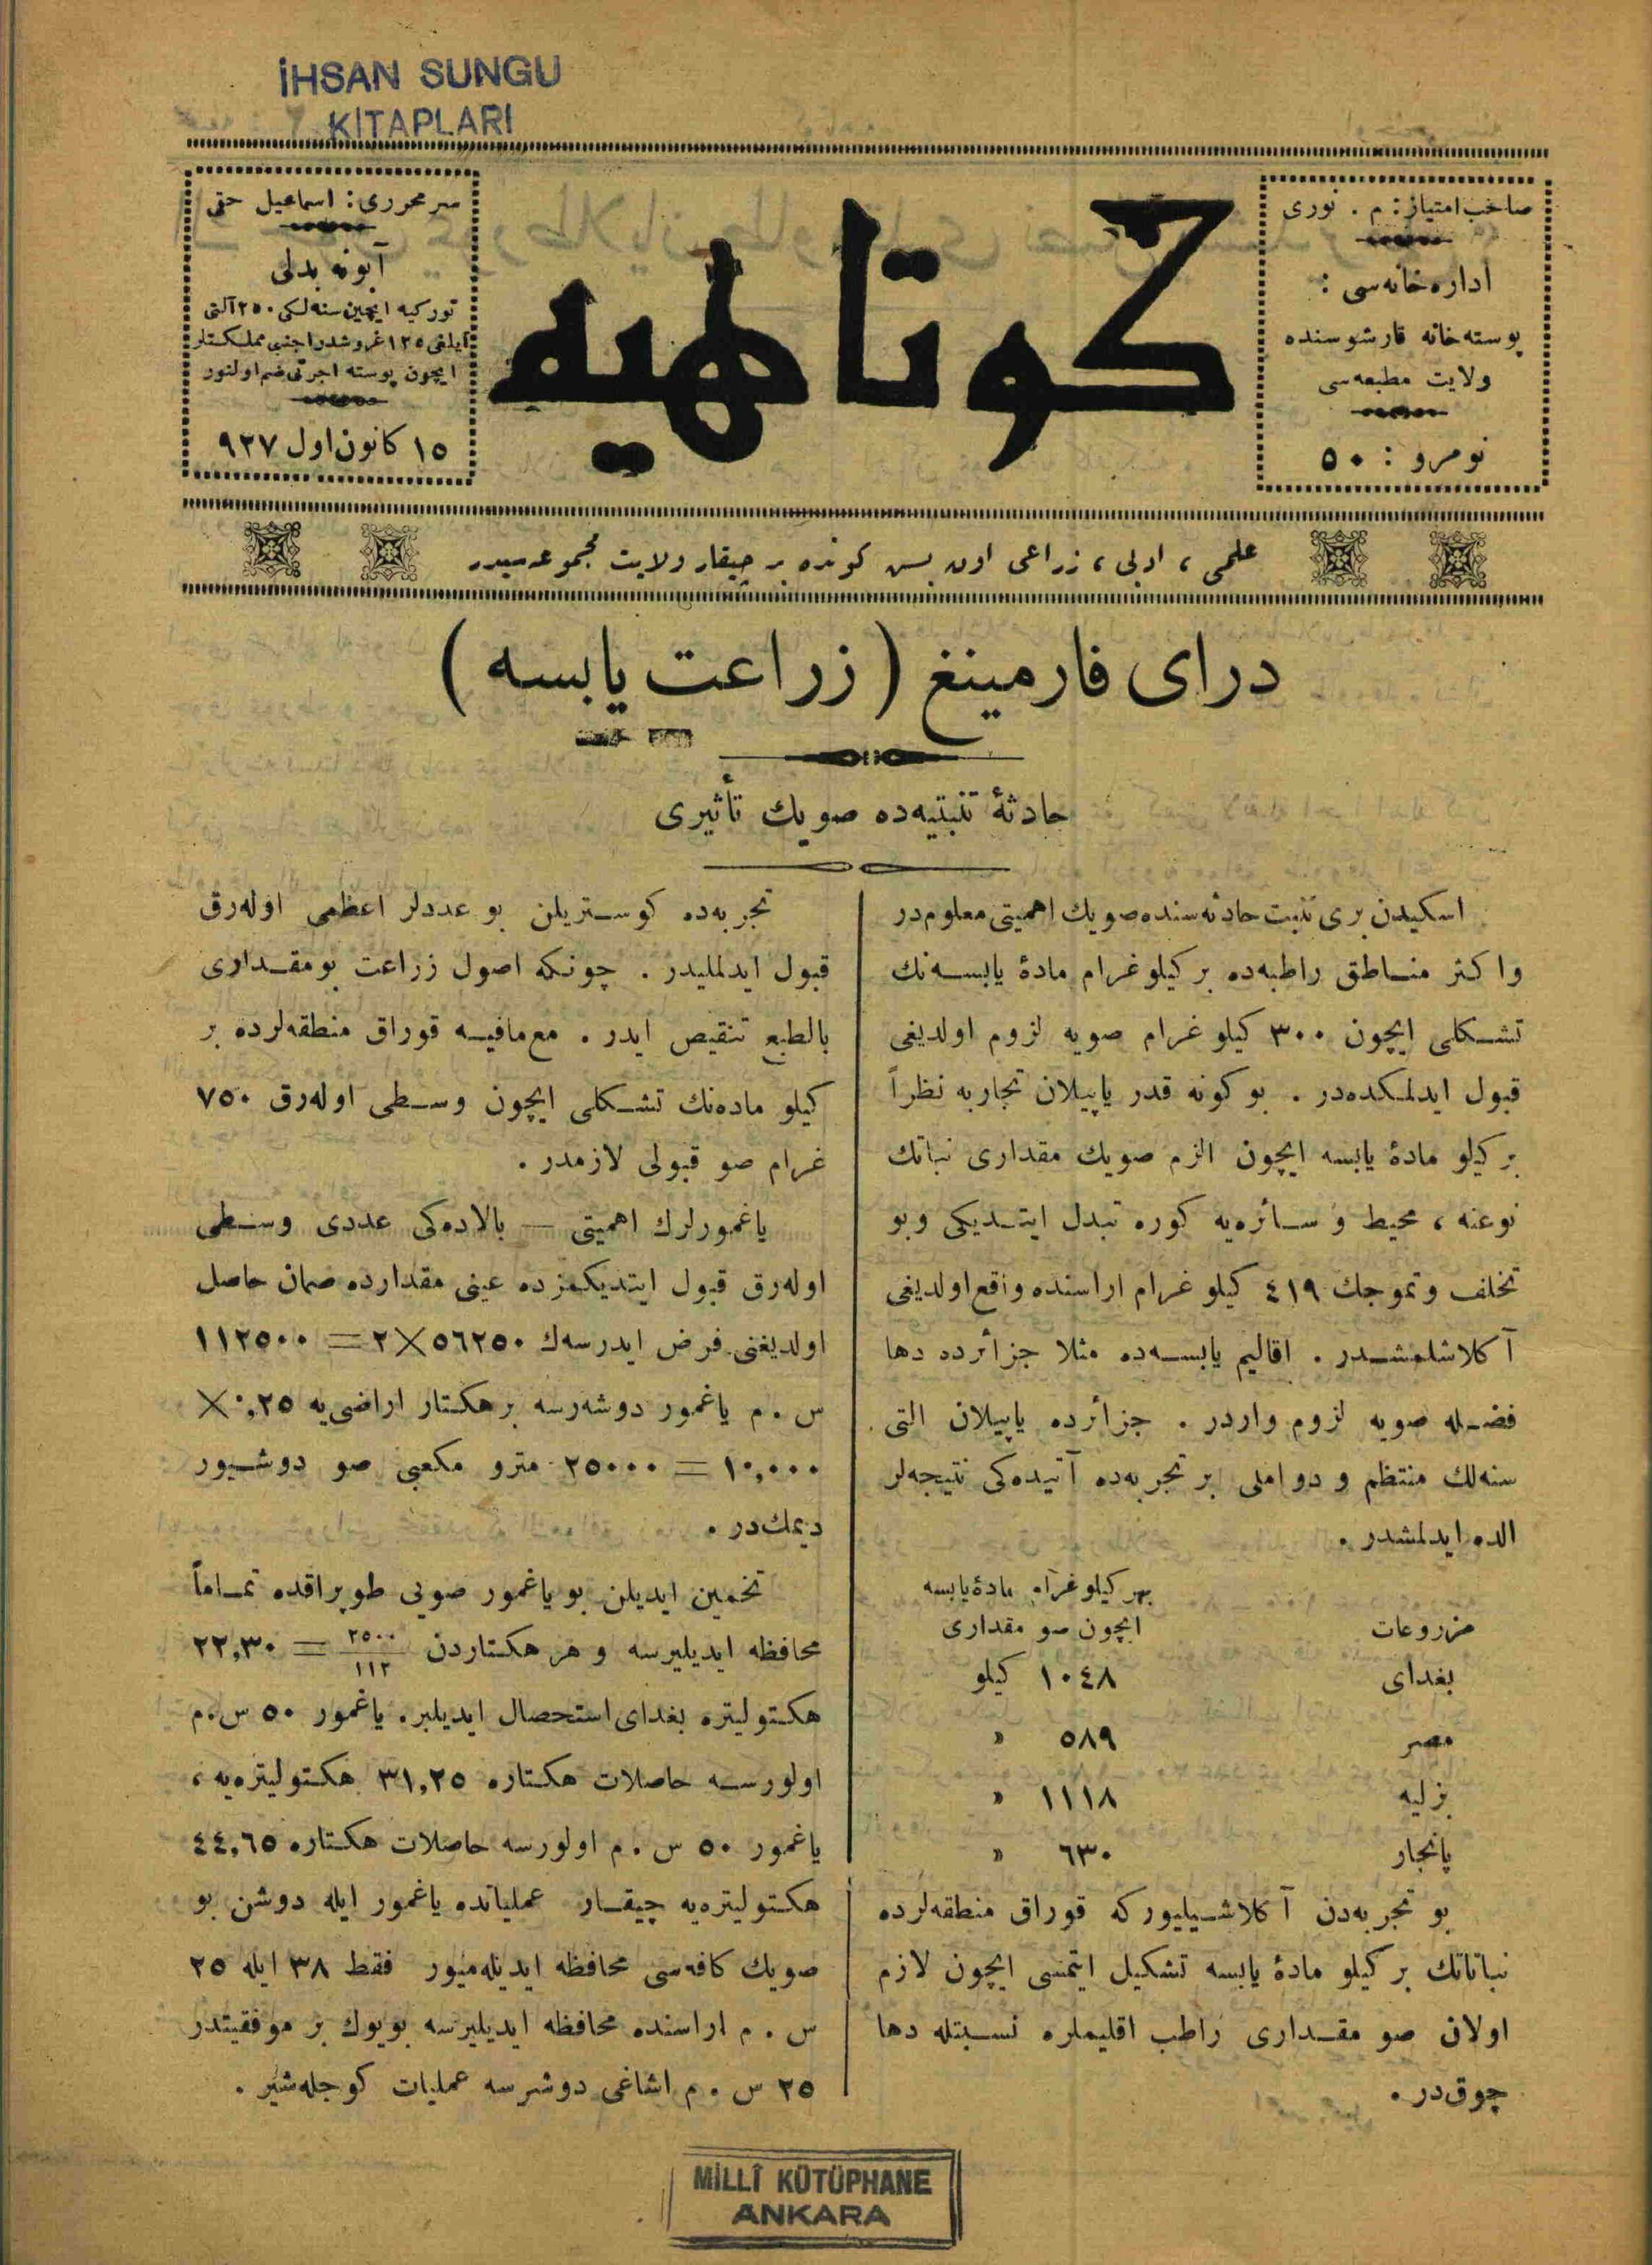 İHSAN SUNGU
KİTAPLARI
صاحب امتیاز: م . نوری
اداره‌خانه‌سی :
پوسته‌خانه قارشوسنده
ولایت مطبعه‌سی
نومرو : ٥٠
کوتاهیه
سرمحرری: اسماعیل حقی
آبونه بدلی
تورکیه ایچین سنه‌لکی ٢٥٠ آلتی
آیلغی ١٢٥ غروشدر اجنبی مملکتلر
ایچون پوسته اجرتی ضم اولنور
١٥ کانون اول ٩٢٧
علمی ، ادبی ، زراعی اون بش کونده بر چیقار ولایت مجموعه‌سیدر
درای فارمینغ ( زراعت یابسه )
حادثهٔ تنبتیه‌ده صویك تأثیری
اسکیدن بری تنبت حادثه‌سنده صویك اهمیتی معلوم‌در
واکثر منـاطق راطبه‌ده بر کیلو غرام مادهٔ یابسـه‌نك
تشـکلی ایچون ٣٠٠ کیلو غرام صویه لزوم اولدیغی
قبول ایدلمکده‌در . بو کونه قدر یاپیلان تجاربه نظراً
بر کیلو مادهٔ یابسه ایچون الزم صویك مقداری نباتك
نوعنه ، محیط و سـائره‌یه کوره تبدل ایتـدیکی و بو
تخلف و تموجك ٤١٩ کیلو غرام اراسنده واقع اولدیغی
آکلاشلمشـدر . اقالیم یابسـه‌ده مثلا جزائرده دها
فضـله صویه لزوم واردر . جزائرده یاپیلان التی
سنه‌لك منتظم و دواملی بر تجربه‌ده آتیده‌کی نتیجه‌لر
الده ایدلمشدر .
بهر کیلو غرام مادهٔ یابسه
مزروعات ایچون صو مقداری
بغدای ١٠٤٨ کیلو
مصر ٥٨٩ »
بزلیه ١١١٨ »
پانجار ٦٣٠ »
بو تجربه‌دن آکلاشـیلیورکه قوراق منطقه‌لرده
نباتاتك بر کیلو مادهٔ یابسه تشکیل ایتمسی ایچون لازم
اولان صو مقـداری راطب اقلیملره نسـبتله دها
چوق‌در .
تجربه‌ده کوسـتریلن بو عددلر اعظمی اوله‌رق
قبول ایدلملیدر . چونکه اصول زراعت بومقـداری
بالطبع تنقیص ایدر . مع‌مافیـه قوراق منطقه‌لرده بر
کیلو ماده‌نك تشـکلی ایچون وسـطی اوله‌رق ٧٥٠
غرام صو قبولی لازمدر .
یاغمورلرك اهمیتی — بالاده‌کی عددی وسـطی
اوله‌رق قبول ایتدیکمزده عینی مقدارده صمان حاصل
اولدیغنی فرض ایدرسه‌ك ٥٦٢٥٠×٢ = ١١٢٥٠٠
س . م یاغمور دوشه‌رسه بر هکتار اراضی‌یه ٠,٢٥×
١٠,٠٠٠ = ٢٥٠٠٠ مترو مکعبی صو دوشـیور
دیمك‌در .
تخمین ایدیلن بو یاغمور صویی طوپراقده تمـاماً
محافظه ایدیلیرسه و هر هکتاردن ٢٥٠٠/١١٢ = ٢٢,٣٠
هکتولیتره بغدای استحصال ایدیلیر. یاغمور ٥٠ س.م
اولورسـه حاصلات هکتاره ٣١,٢٥ هکتولیتره‌یه ،
یاغمور ٥٠ س . م اولورسه حاصلات هکتاره ٤٤,٦٥
هکتولیتره‌یه چیقـار عملیاتده یاغمور ایله دوشن بو
صویك کافه‌سی محافظه ایدیله‌میور فقط ٣٨ ایله ٢٥
س . م اراسنده محافظه ایدیلیرسه بویوك بر موفقیتدر
٢٥ س . م اشاغی دوشرسه عملیات کوجله‌شیر .
MİLLÎ KÜTÜPHANE
ANKARA